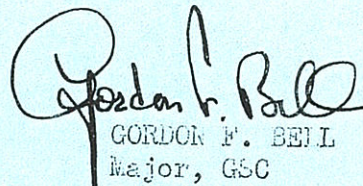 Gordon F. Bell
GORDON F. BELL
Major, GSC